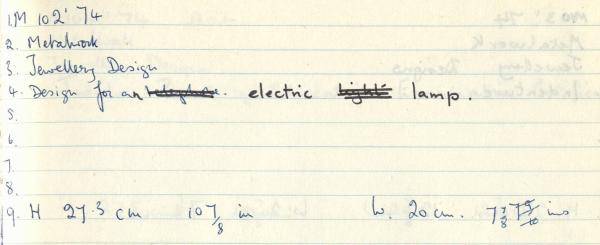 1. M 102' 74
2. Metalwork
3. Jewellery Design
4. Design for an electric lamp.
5.
6.
7.
8.
9. H 27.3 cm 10 7/8 in W. 20 cm. 7 7/8 ins